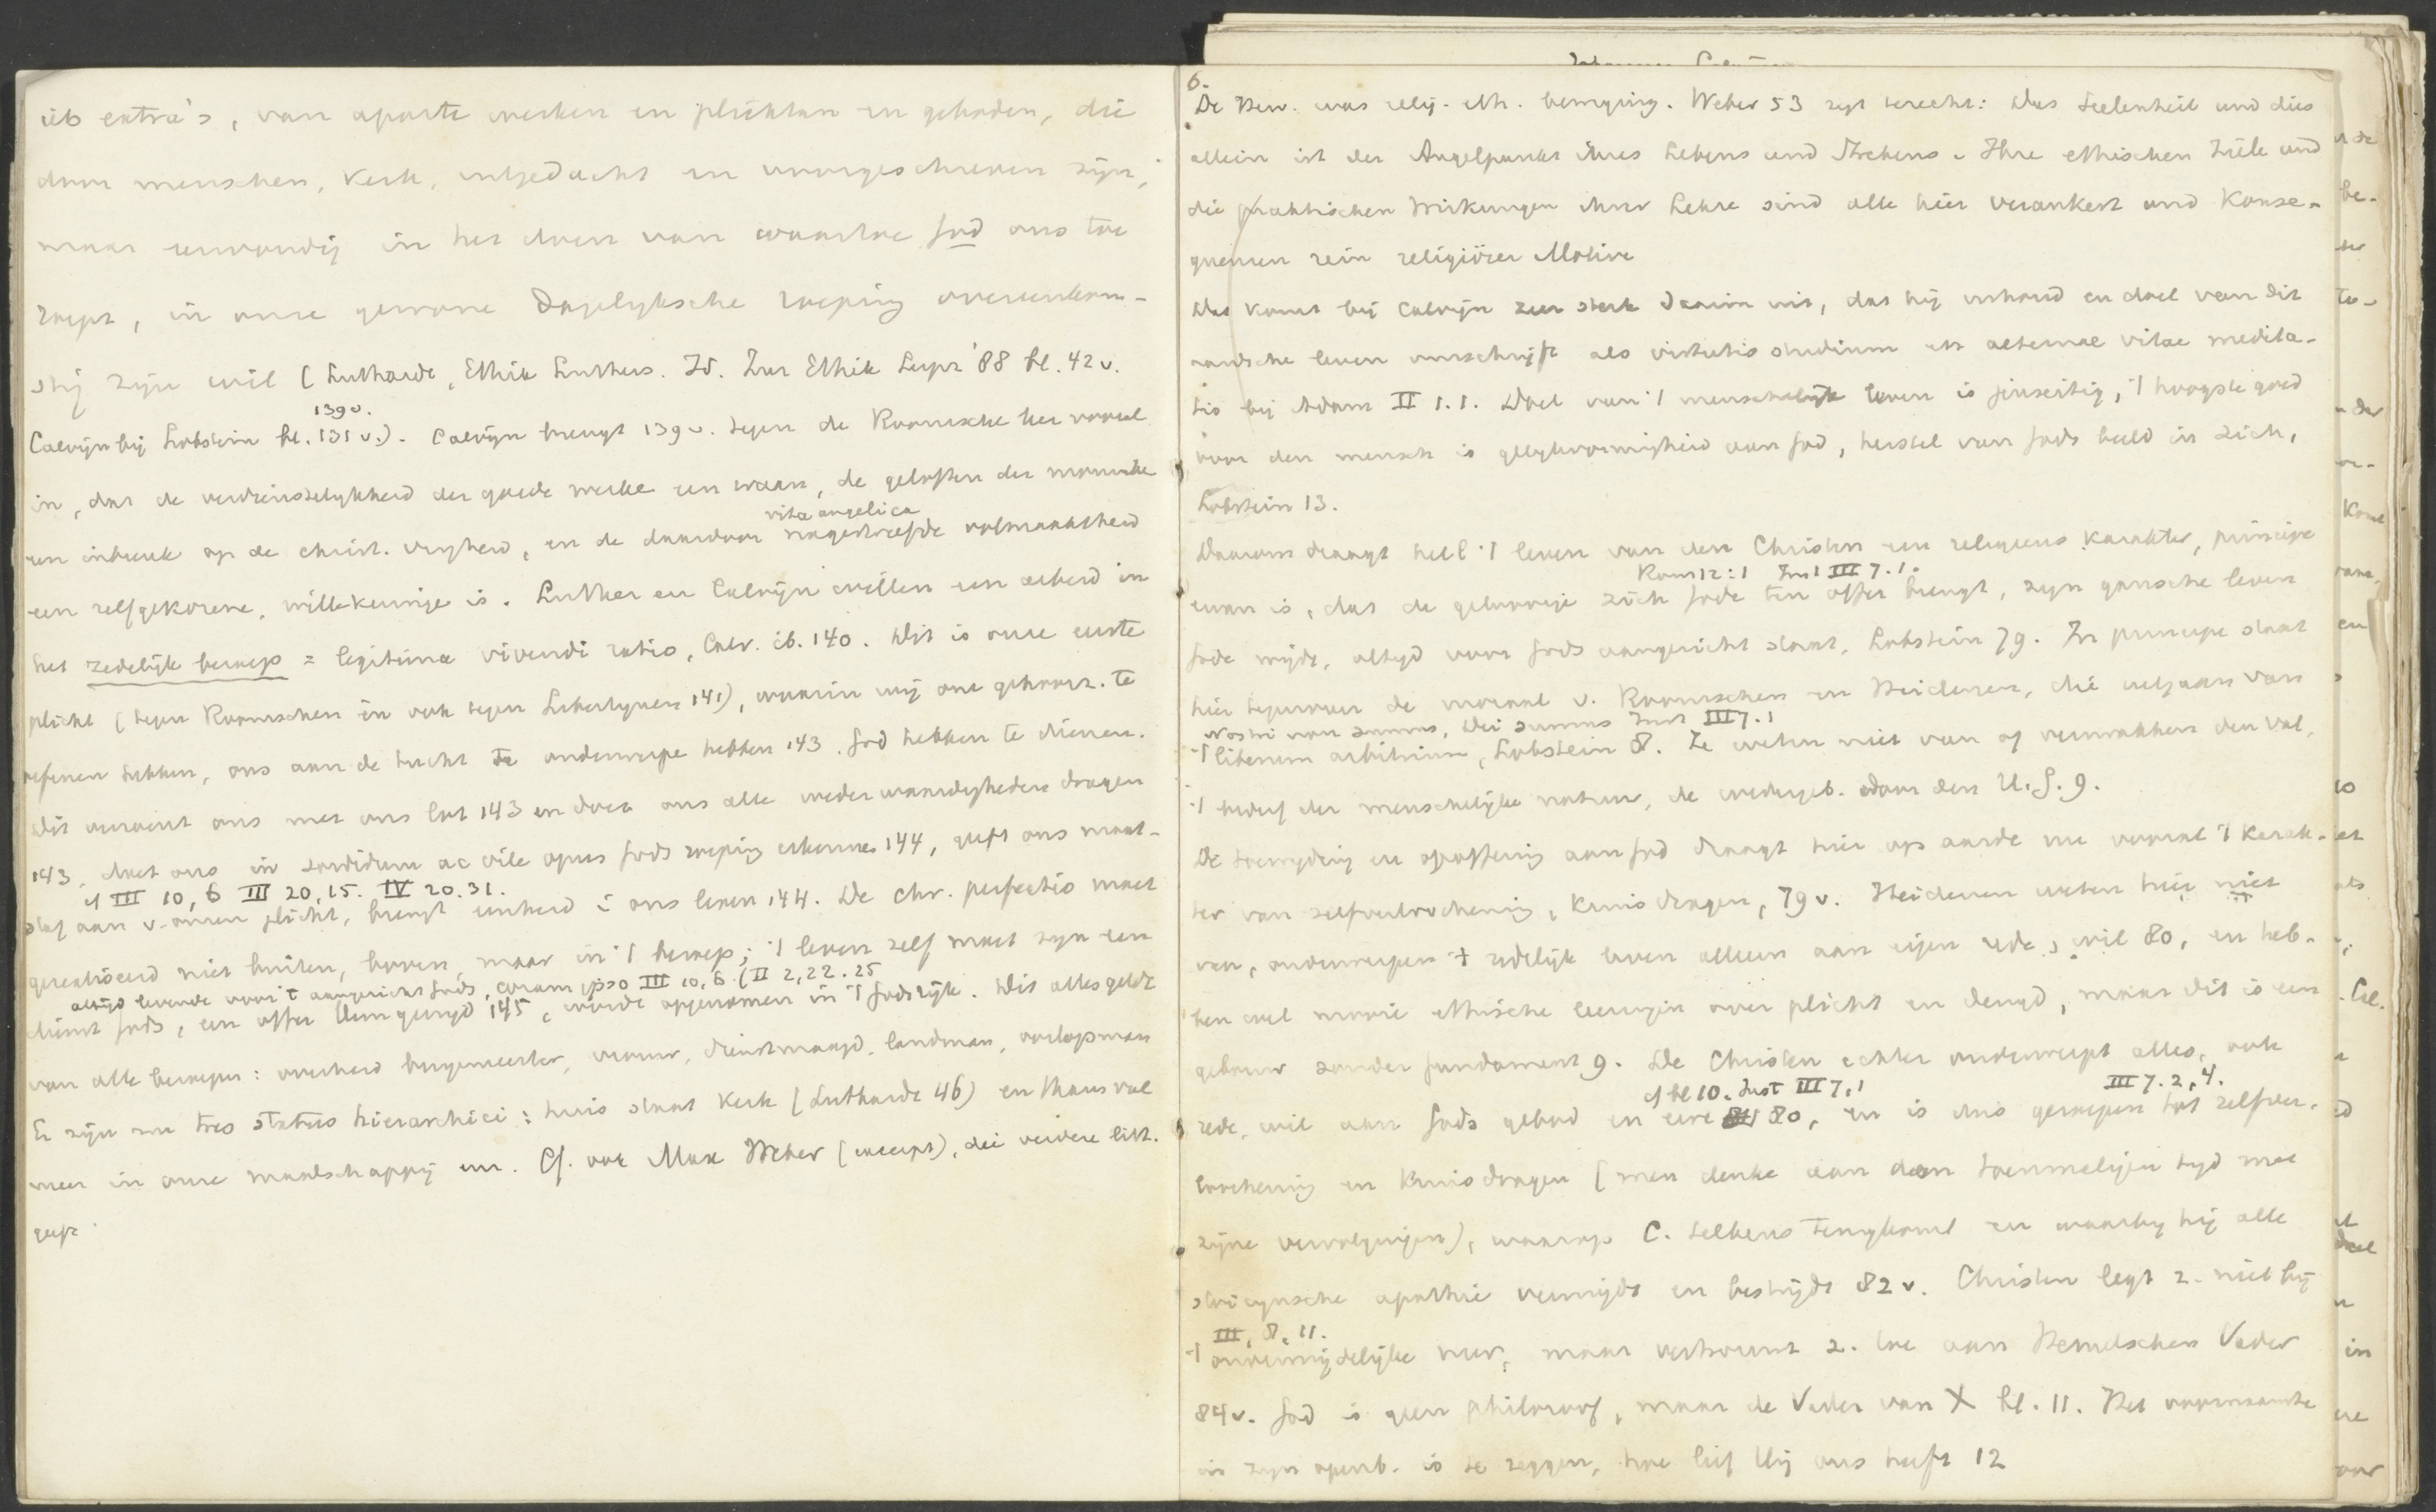 iets extra's, van aparte werken en plichten en geboden, die
door menschen, kerk, uitgedacht en voorgeschreven zijn,
maar eenvoudig in het doen van waartoe God ons toe
roept, in onze gewone dagelyksche roeping overeenkom-
stig zijn wil (Luthardt, Ethik Luthers. Id. Zur Ethik Leipz '88 bl. 42 v.
139 v.
Calvijn bij Lobstein bl. 131 v.). Calvijn brengt 139 v. tegen de Roomsche leer vooral
in, dat de verdienstelykheid der goede werke een waan, de geloften der monnike
vita angelica
een inbreuk op de christ. vryheid, en de daardoor nagestreefde volmaaktheid
een zelfgekozene, willekeurige is. Luther en Calvijn willen een arbeid in
het zedelijk beroep = legitima vivendi ratio, Calv. ib. 140. Dit is onze eerste
plicht (tegen Roomschen en ook tegen Libertynen 141), waarin wij onze gehoorz. te
oefenen hebben, ons aan de tucht te onderwerpe hebben 143. God hebben te dienen.
Dit vereent ons met ons lot 143 en doet ons alle wederwaardigheden dragen
143, doet ons in sordidum ac vile opus Gods roeping erkennen 144, geeft ons maat-
cf III 10, 6 III 20, 15. IV 20. 31.
staf aan v. onzen plicht, brengt eenheid i ons leven 144. De chr. perfectio moet
gerealiseerd niet buiten, boven, maar in 't beroep; 't leven zelf moet zyn een
altijd levende voor 't aangezicht Gods, coram ipso III 10, 6. (II 2, 22. 25
dienst Gods, een offer Hem gewyd 145, worde opgenomen in 't Godsrijk. Dit alles geldt
van alle beroepen: overheid burgemeester, vrouw, dienstmaagd, landman, oorlogsman
Er zijn nu tres status hierarchici: huis staat kerk (Luthardt 46) en thans veel
meer in onze maatschappij enz. Cf. ook Max Weber (excerpt), die verdere litt.
geeft.
6.
De Herv. was relig.-eth. beweging. Weber 53 zegt terecht: Das Seelenheil und dies
allein ist der Angelpunkt ihres Lebens und Strebens. Ihre ethischen Ziele und
die praktischen Wirkungen ihrer Lehre sind alle hier verankert und Konse-
quenzen rein religiöser Motive
Dat komt bij Calvijn zeer sterk daarin uit, dat hij inhoud en doel van dit
aardsche leven omschrijft als virtutis studium en aeternae vitae medita-
tio bij Adam II 1. 1. Doel van 't menschelijk leven is jenseitig, 't hoogste goed
voor den mensch is gelykvormigheid aan God, herstel van Gods beeld in zich,
Lobstein 13.
Daarom draagt heel 't leven van den Christen een religieus karakter, principe
Rom 12:1 Inst III 7. 1.
ervan is, dat de geloovige zich Gode ten offer brengt, zyn gansche leven
Gode wijdt, altyd voor Gods aangezicht staat, Lobstein 79. In principe staat
hier tegenover de moraal v. Roomschen en Heidenen, die uitgaan van
Nostri non sumus, Dei sumus Inst III 7. 1
't liberum arbitrium, Lobstein 8. Ze weten niet van of verzwakken den val,
't bederf der menschelijke natuur, de wedergeb. door den H. G. 9.
De toewyding en opoffering aan God draagt hier op aarde nu vooral 't karak-
ter van zelfverloochening, kruisdragen, 79 v. Heidenen weten hier niet
van, onderwerpen 't zedelijk leven alleen aan eigen rede, wil 80, en heb-
ben wel mooie ethische leeringen over plicht en deugd, maar dit is een
gebouw zonder fundament 9. De Christen echter onderwerpt alles, ook
cf bl 10. Inst III 7, 1 III 7. 2, 4.
rede, wil aan Gods gebod en eere 80, en is dus geroepen tot zelfver-
loochening en kruisdragen (men denke aan den toenmaligen tyd met
zijne vervolgingen), waarop C. telkens terugkomt en waarby hij alle
stoicynsche apathie vermijdt en bestrijdt 82 v. Christen legt z. niet bij
III, 8, 11.
't onvermijdelijke neer, maar vertrouwt z. toe aan Hemelschen Vader
84 v. God is geen philosoof, maar de Vader van X bl. 11. Het voornaamste
in zyn openb. is te zeggen, hoe lief Hij ons heeft 12